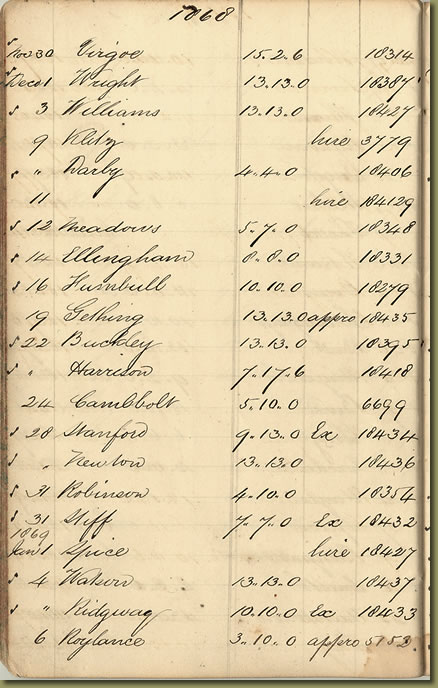 1868
s Nov 30 Virgoe 15.2.6 18314
s Dec 1 Wright 13.13.0 18387
s 3 Williams 13.13.0 18427
9 Klitz hire 3779
s " Darby 4.4.0 18406
11 hire 18412g
s 12 Meadows 5.7.0 18348
s 14 Ellingham 8.8.0 18331
s 16 Turnbull 10.10.0 18279
19 Gething 13.13.0 appro 18435
s 22 Buckley 13.13.0 18395
s " Harrison 7.17.6 18418
24 5.10.0 6699
s 28 Stanford 9.13.0 Ex 18434
s " Newton 13.13.0 18436
s 31 Robinson 4.10.0 18354
s 31 Stiff 7.7.0 Ex 18432
1869
Jan 1 Spice hire 18427
s 4 Watson 13.13.0 18437
s " Ridgway 10.10.0 Ex 18433
6 Roylance 3.10.0 appro 5153